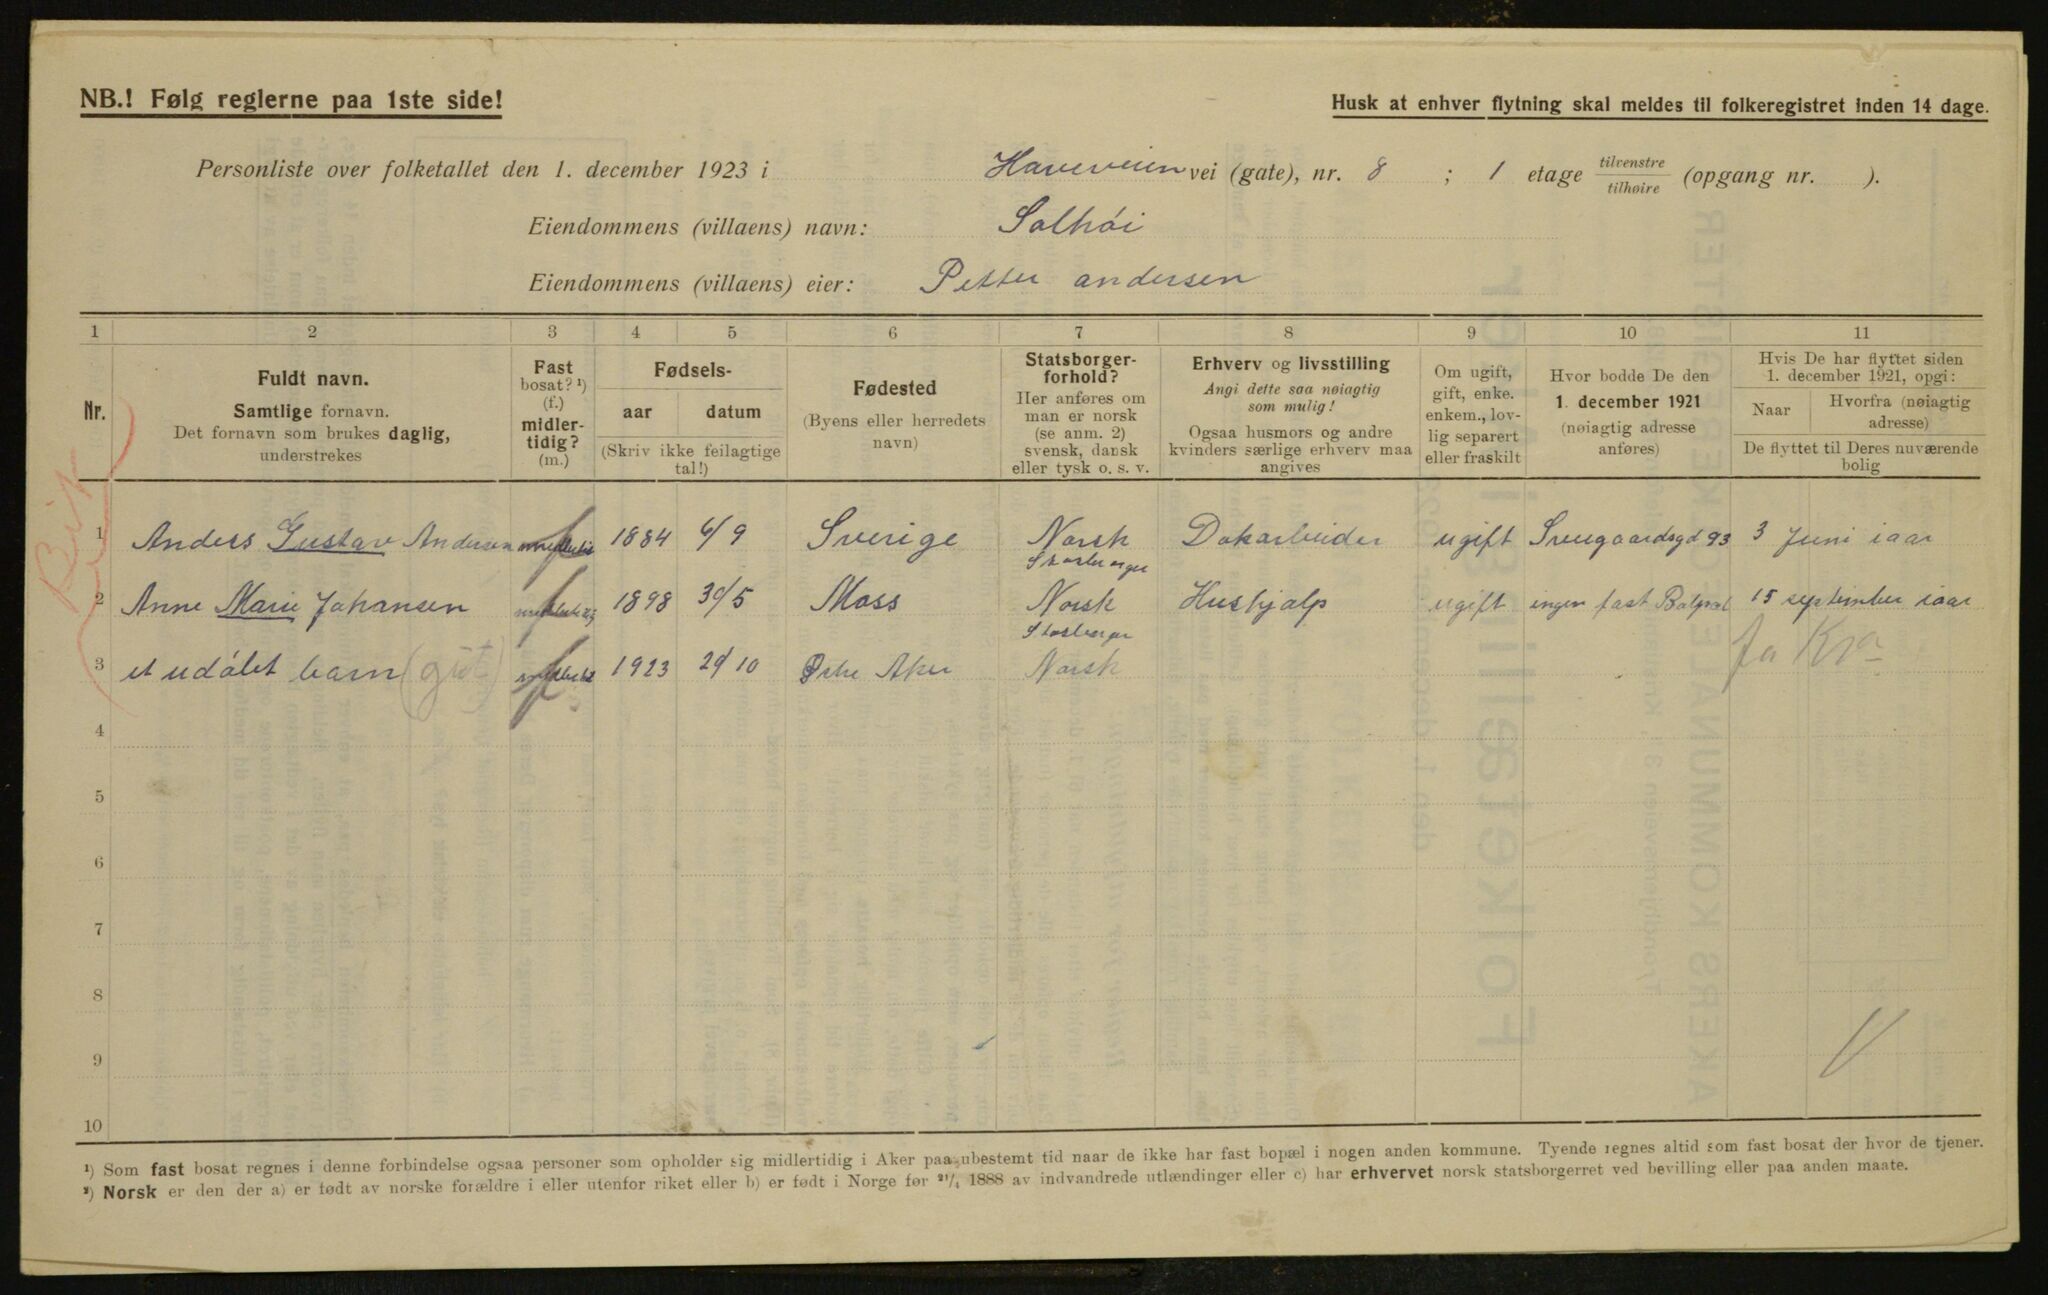 NB.! Følg reglerne paa 1ste side!
Husk at enhver flytning skal meldes til folkeregistret inden 14 dage.
Personliste over folketallet den 1. december 1923 i Haveveien vei (gate), nr. 8 ; 1 etage tilvenstre/tilhøire (opgang nr. ).
Eiendommens (villaens) navn: Solhöi
Eiendommens (villaens) eier: Petter andersen
1 2 3 4 5 6 7 8 9 10 11
Nr.
Fuldt navn.
Samtlige fornavn.
Det fornavn som brukes daglig,
understrekes
Fast
bosat? ¹)
(f.)
midler-
tidig?
(m.)
Fødsels-
aar datum
(Skriv ikke feilagtige
tal!)
Fødested
(Byens eller herredets
navn)
Statsborger-
forhold?
Her anføres om
man er norsk
(se anm. 2)
svensk, dansk
eller tysk o. s. v.
Erhverv og livsstilling
Angi dette saa nøiagtig
som mulig!
Ogsaa husmors og andre
kvinders særlige erhverv maa
angives
Om ugift,
gift, enke.
enkem., lov-
lig separert
eller fraskilt
Hvor bodde De den
1. december 1921
(nøiagtig adresse
anføres)
Hvis De har flyttet siden
1. december 1921, opgi:
Naar
Hvorfra (nøiagtig
adresse)
De flyttet til Deres nuværende
bolig
1 Anders Gustav Andersen f 1884 6/9 Sverige Norsk Dokarbeider ugift 93 3 Juni iaar
2 Anne Marie Johansen f 1898 30/5 Moss Norsk Hushjalp ugift ingen fast 15 september iaar
3 et udöbt barn (gut) f 1923 29/10 Aker Norsk fra Kra
4
5
6
7
8
9
10
¹) Som fast bosat regnes i denne forbindelse ogsaa personer som opholder sig midlertidig i Aker paa ubestemt tid naar de ikke har fast bopæl i nogen anden kommune. Tyende regnes altid som fast bosat der hvor de tjener.
²) Norsk er den der a) er født av norske forældre i eller utenfor riket eller b) er født i Norge før ²¹/₄ 1888 av indvandrede utlændinger eller c) har erhvervet norsk statsborgerret ved bevilling eller paa anden maate.